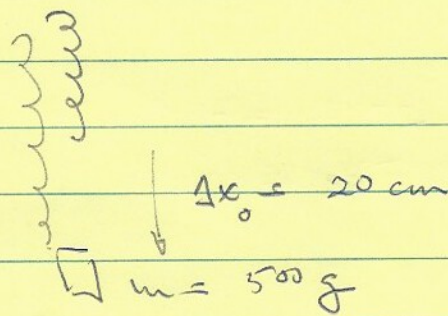 Δx₀ = 20 cm
m = 500 g